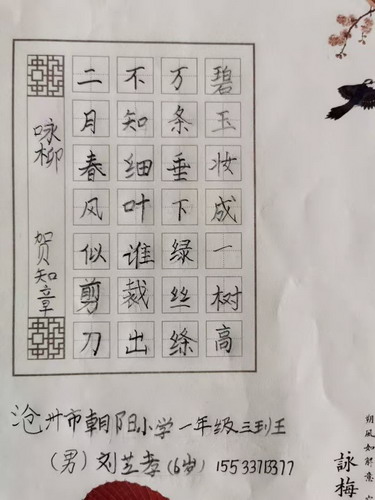 碧玉妆成一树高
万条垂下绿丝绦
不知细叶谁裁出
二月春风似剪刀
咏柳 贺知章
沧州市朝阳小学一年级三班
(男) 刘芝孝 (6岁) 15533713377
朔風如解意
詠梅